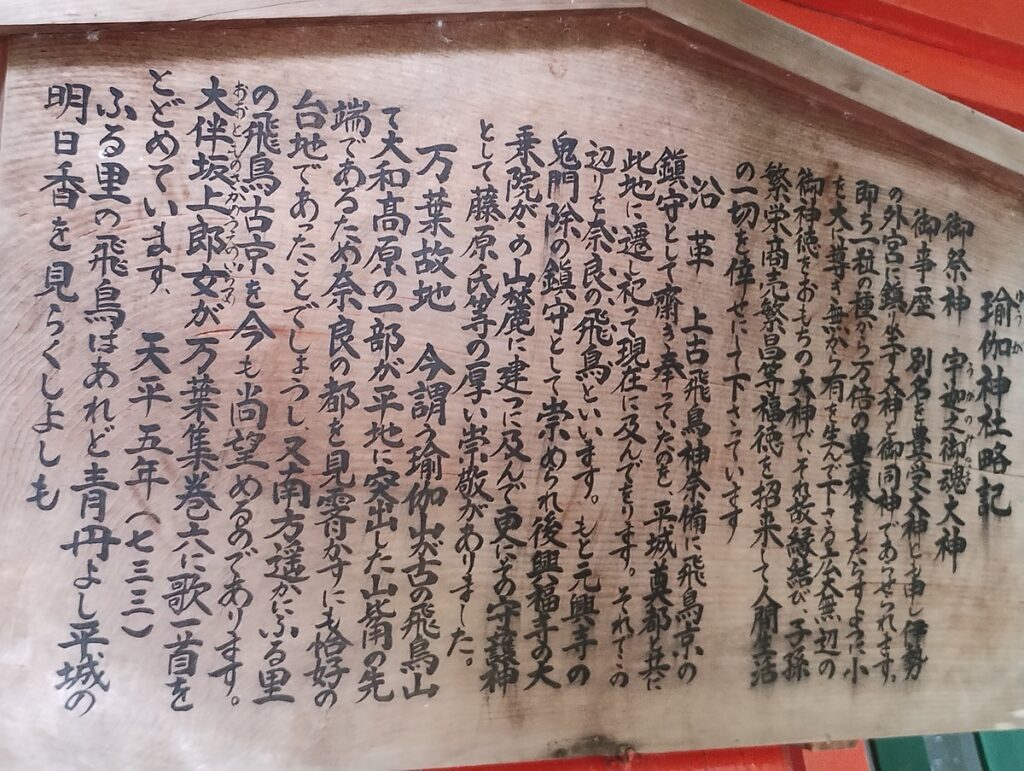 瑜伽神社略記
御祭神 宇迦之御魂大神
御事歴 別名を豊受大神とも申し伊勢
の外宮に鎮り坐す大神と御同神であらせられます。
即ち一粒の種から万倍の豊穣をもたらすように小
を大に尊き無から有を生んで下さる広大無辺の
御神徳をおもちの大神で、それ故縁結び、子孫
繁栄商売繁昌等福徳を招来して人間生活
の一切を倖せにして下さっています
沿革 上古飛鳥神奈備に飛鳥京の
鎮守として齋き奉っていたのを 平城奠都と共に
此地に遷し祀って現在に及んでをります。それでこの
辺りを奈良の飛鳥といいます。もと元興寺の
鬼門除の鎮守として崇められ後興福寺の大
乗院がこの山麓に建つに及んで更にその守護神
として藤原氏等の厚い崇敬がありました。
万葉故地 今謂う瑜伽山が古の飛鳥山
て大和高原の一部が平地に突出した山柴南の先
端であるため奈良の都を見霽かすにも恰好の
台地であったことでしょうし、又南方遥かにふる里
の飛鳥古京を今も尚望めるのであります。
大伴坂上郎女が万葉集巻六に歌一首を
とどめています、 天平五年(七三三)
ふる里の飛鳥はあれど青丹よし平城の
明日香を見らくしよしも